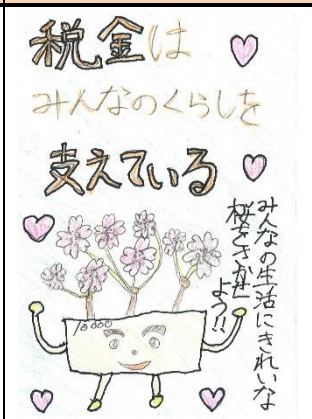 税金は
みんなのくらしを
支えている
みんなの生活にきれいな
桜をさかせ
よう!!
10000